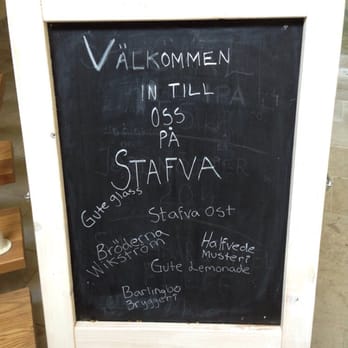 VÄLKOMMEN
IN TILL
OSS
PÅ
STAFVA
Gute glass
Stafva ost
Bröderna
Wikström
Halfvede
Musteri
Gute Lemonade
Barlingbo
Bryggeri